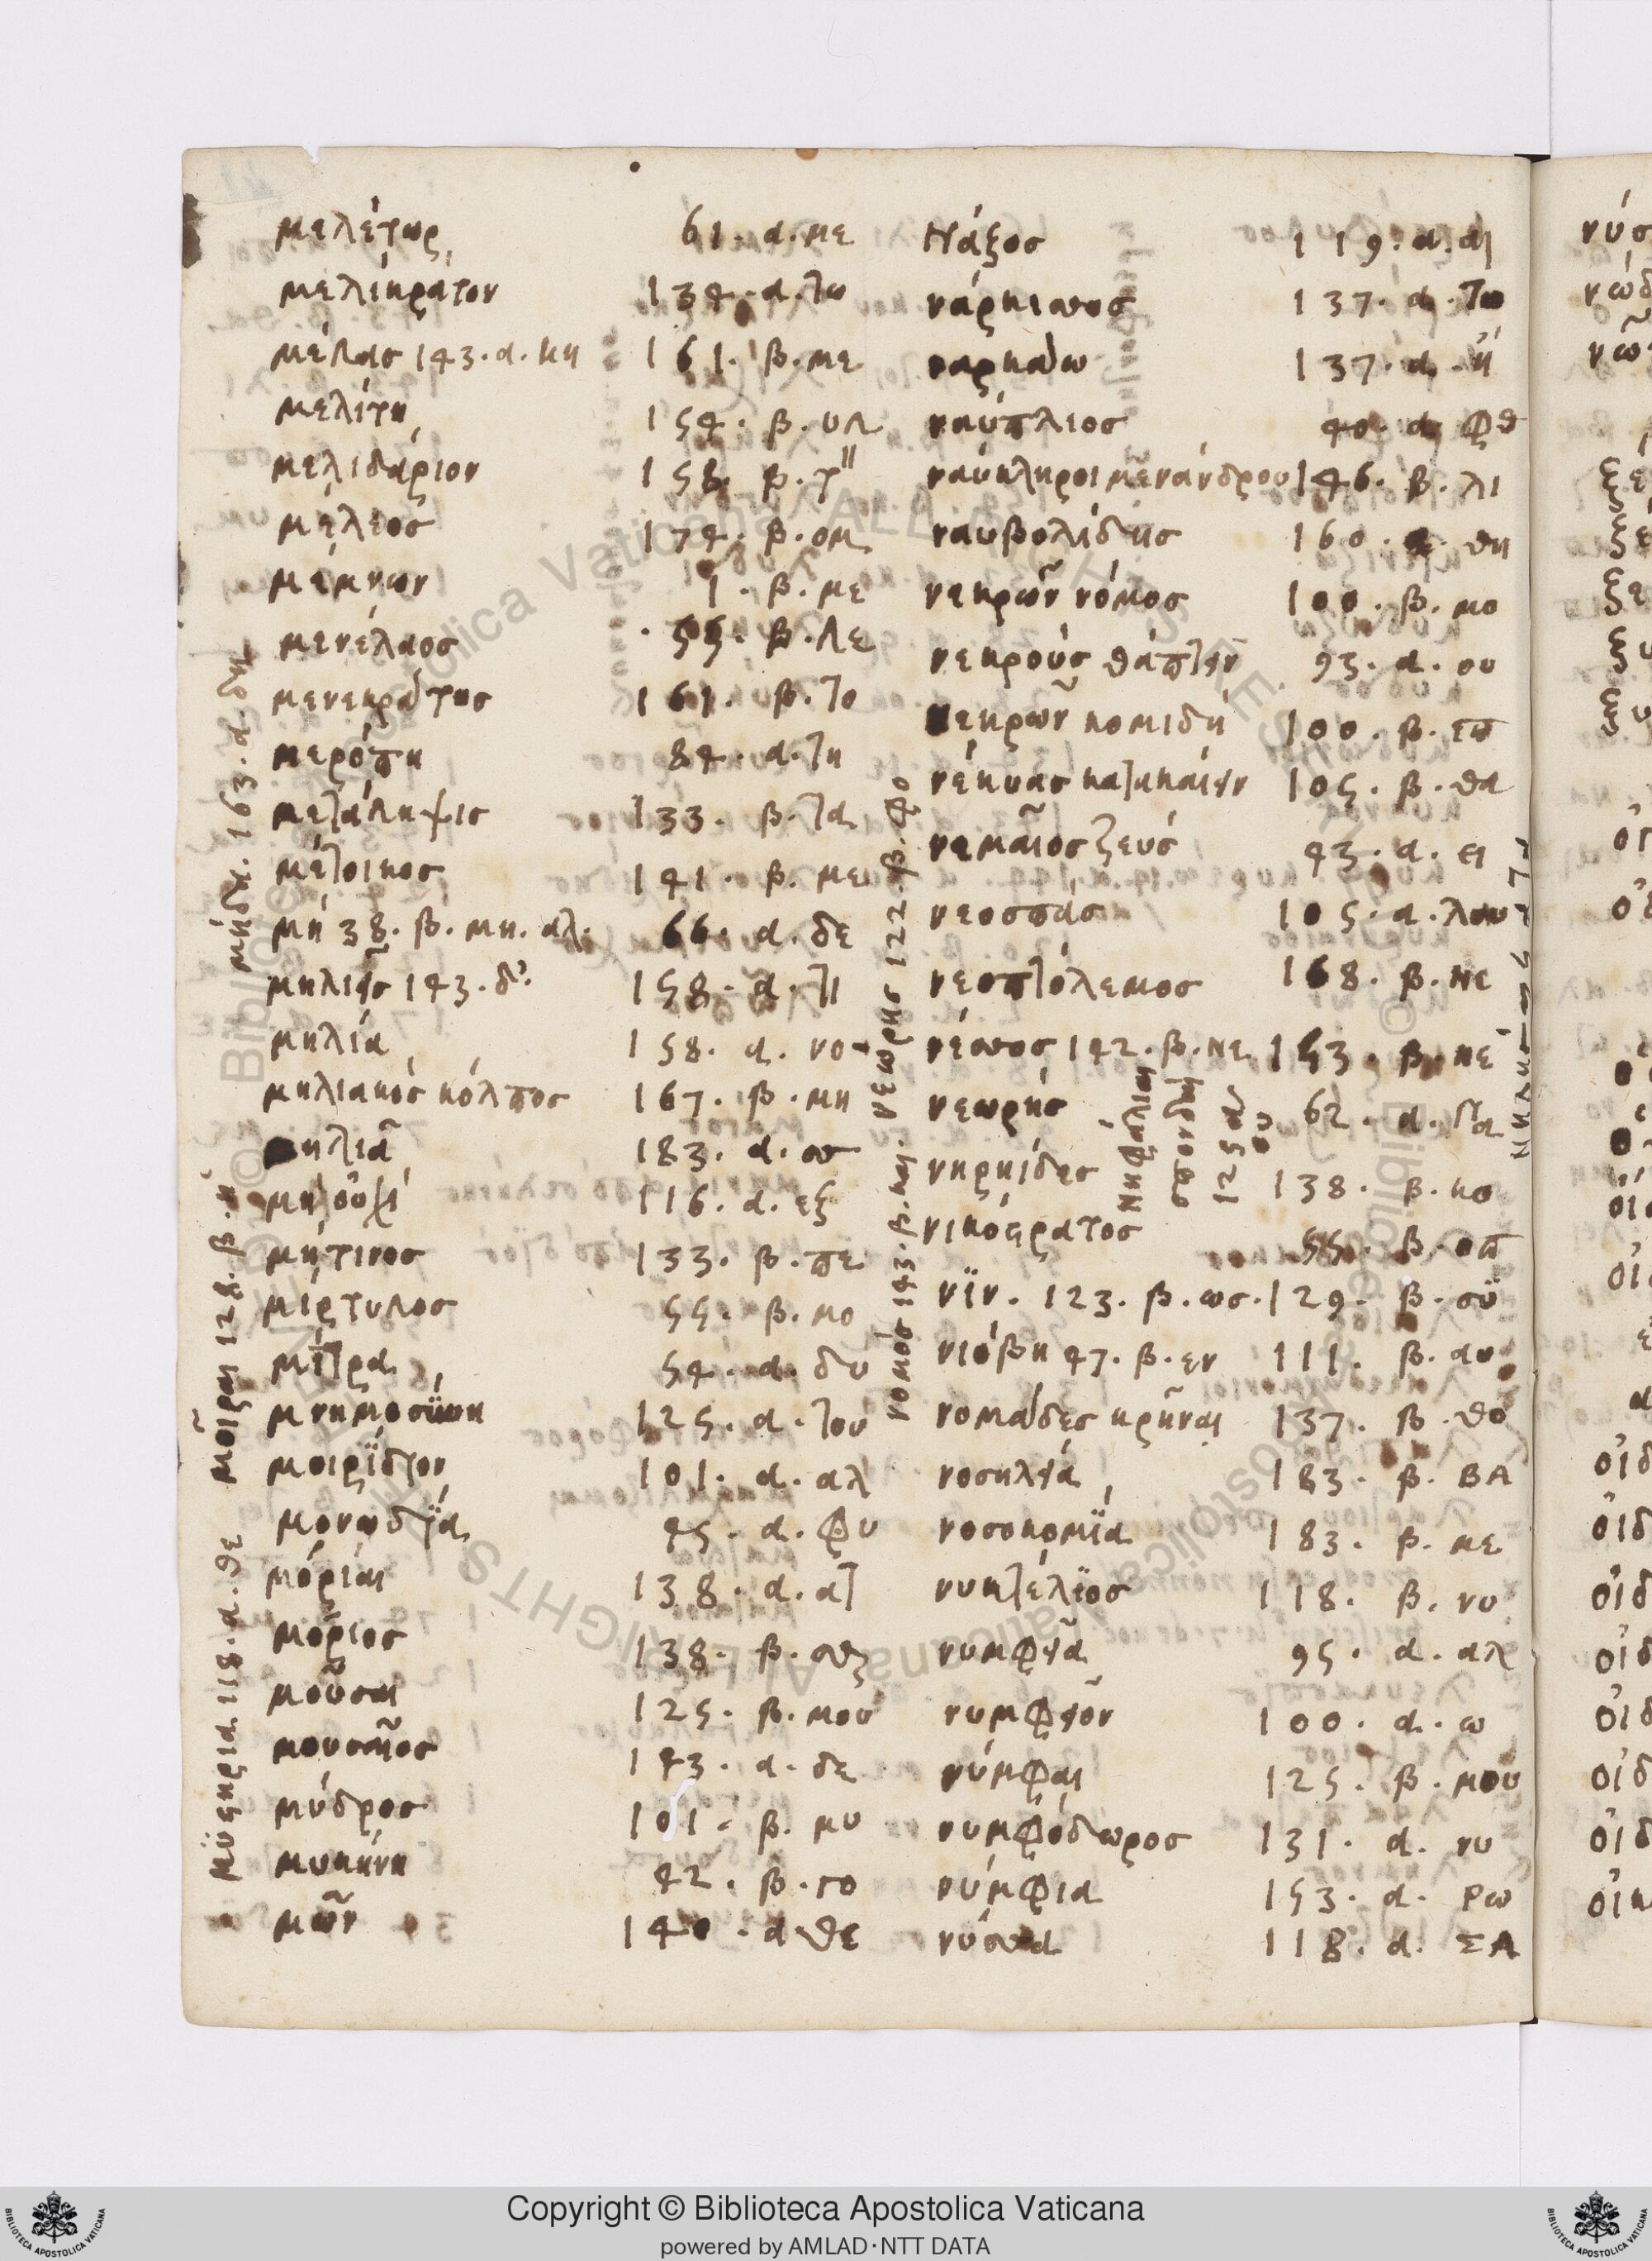 μελέτωρ 61. α. με
μελίκρατον 134. α. τω
μέλας 143. α. κη 161. β. με
μελίτη 154. β. υλ
μελιδάριον 158. β.
μέλεος 174. β. ομ
μέμνων 1. β. με
μενέλαος 55. β. λε
μενεκράτης 161. β. το
μερόπη 84. α. τη
μετάληψις 133. β. τα
μέτοικος 141. β. με
μή 38. β. μη. αλ. 66. α. δε
μηλιεῖς 143. 158. α. τι
μηλιά 158. α. νο
μηλιακός κόλπος 167. β. μη
μηλιᾶ 183. α.
μὴ οὐχί 116. α. εξ
μήτινος 133. β. πε
μίρτυλος 55. β. μο
μίτρα 54. α. δυ
μνημοσύνη 125. α. του
101. α. αλ
μονῳδΐα 45. α. φυ
μόριαι 138. α. ατ
μόριος 138. β.
μοῦσαι 125. β. μου
μουσαῖος 143. α. δε
μύδρος 101. β. μυ
μυκήνη 42. β. γο
μῶν 140. α. θε
μήδη. 163. α.
μοῖραι 128. β. κ
μϋστηρια 118. α. θε
Νάξος 119. α. αι
νάρκισσος 137. α. τω
ναρκάω 137. α. ἡ
ναύπλιος 40. α. φθ
ναύκληροι μενάνδρου 146. β. λι
ναυβολίδης 160. α. θη
νεκρῶν νόμος 100. β. μο
νεκρούς θάπτειν 93. α. ου
νεκρῶν κομιδή 100. β. επ
νέκυας κατακαίειν 105. β. θα
νεμαῖος ζεύς 43. α. ει
νεοσπάς 105. α. λου
νεοπτόλεμος 168. β. νε
νέσσος 142. β. νε 153. β. νέ
νεωρής 62. α. γα
νηρηίδες 138. β. κο
νικόστρατος 55. β. οπ
νϊν. 123. β. ως. 129. β. σϋ
νιόβη 47. β. εν 111. β. αυ
νομάδες κρῆναι 137. β. θο
νοσηλεία 183. β. ΒΑ
νοσοκομϊα 183. β. με
νυκτέλϊος 118. β. νυ
νυμφεῖα 95. α. αλ
νυμφεῖον 100. α. ω
νύμφαι 125. β. μου
νυμφόδωρος 131. α. νυ
νύμφια 153. α. ρω
νύσσα 118. α. ΣΑ
νομός 143. β. και. νεωρης 122. β. φο
νηφάλιαι
σπονδαί
125 α
ου